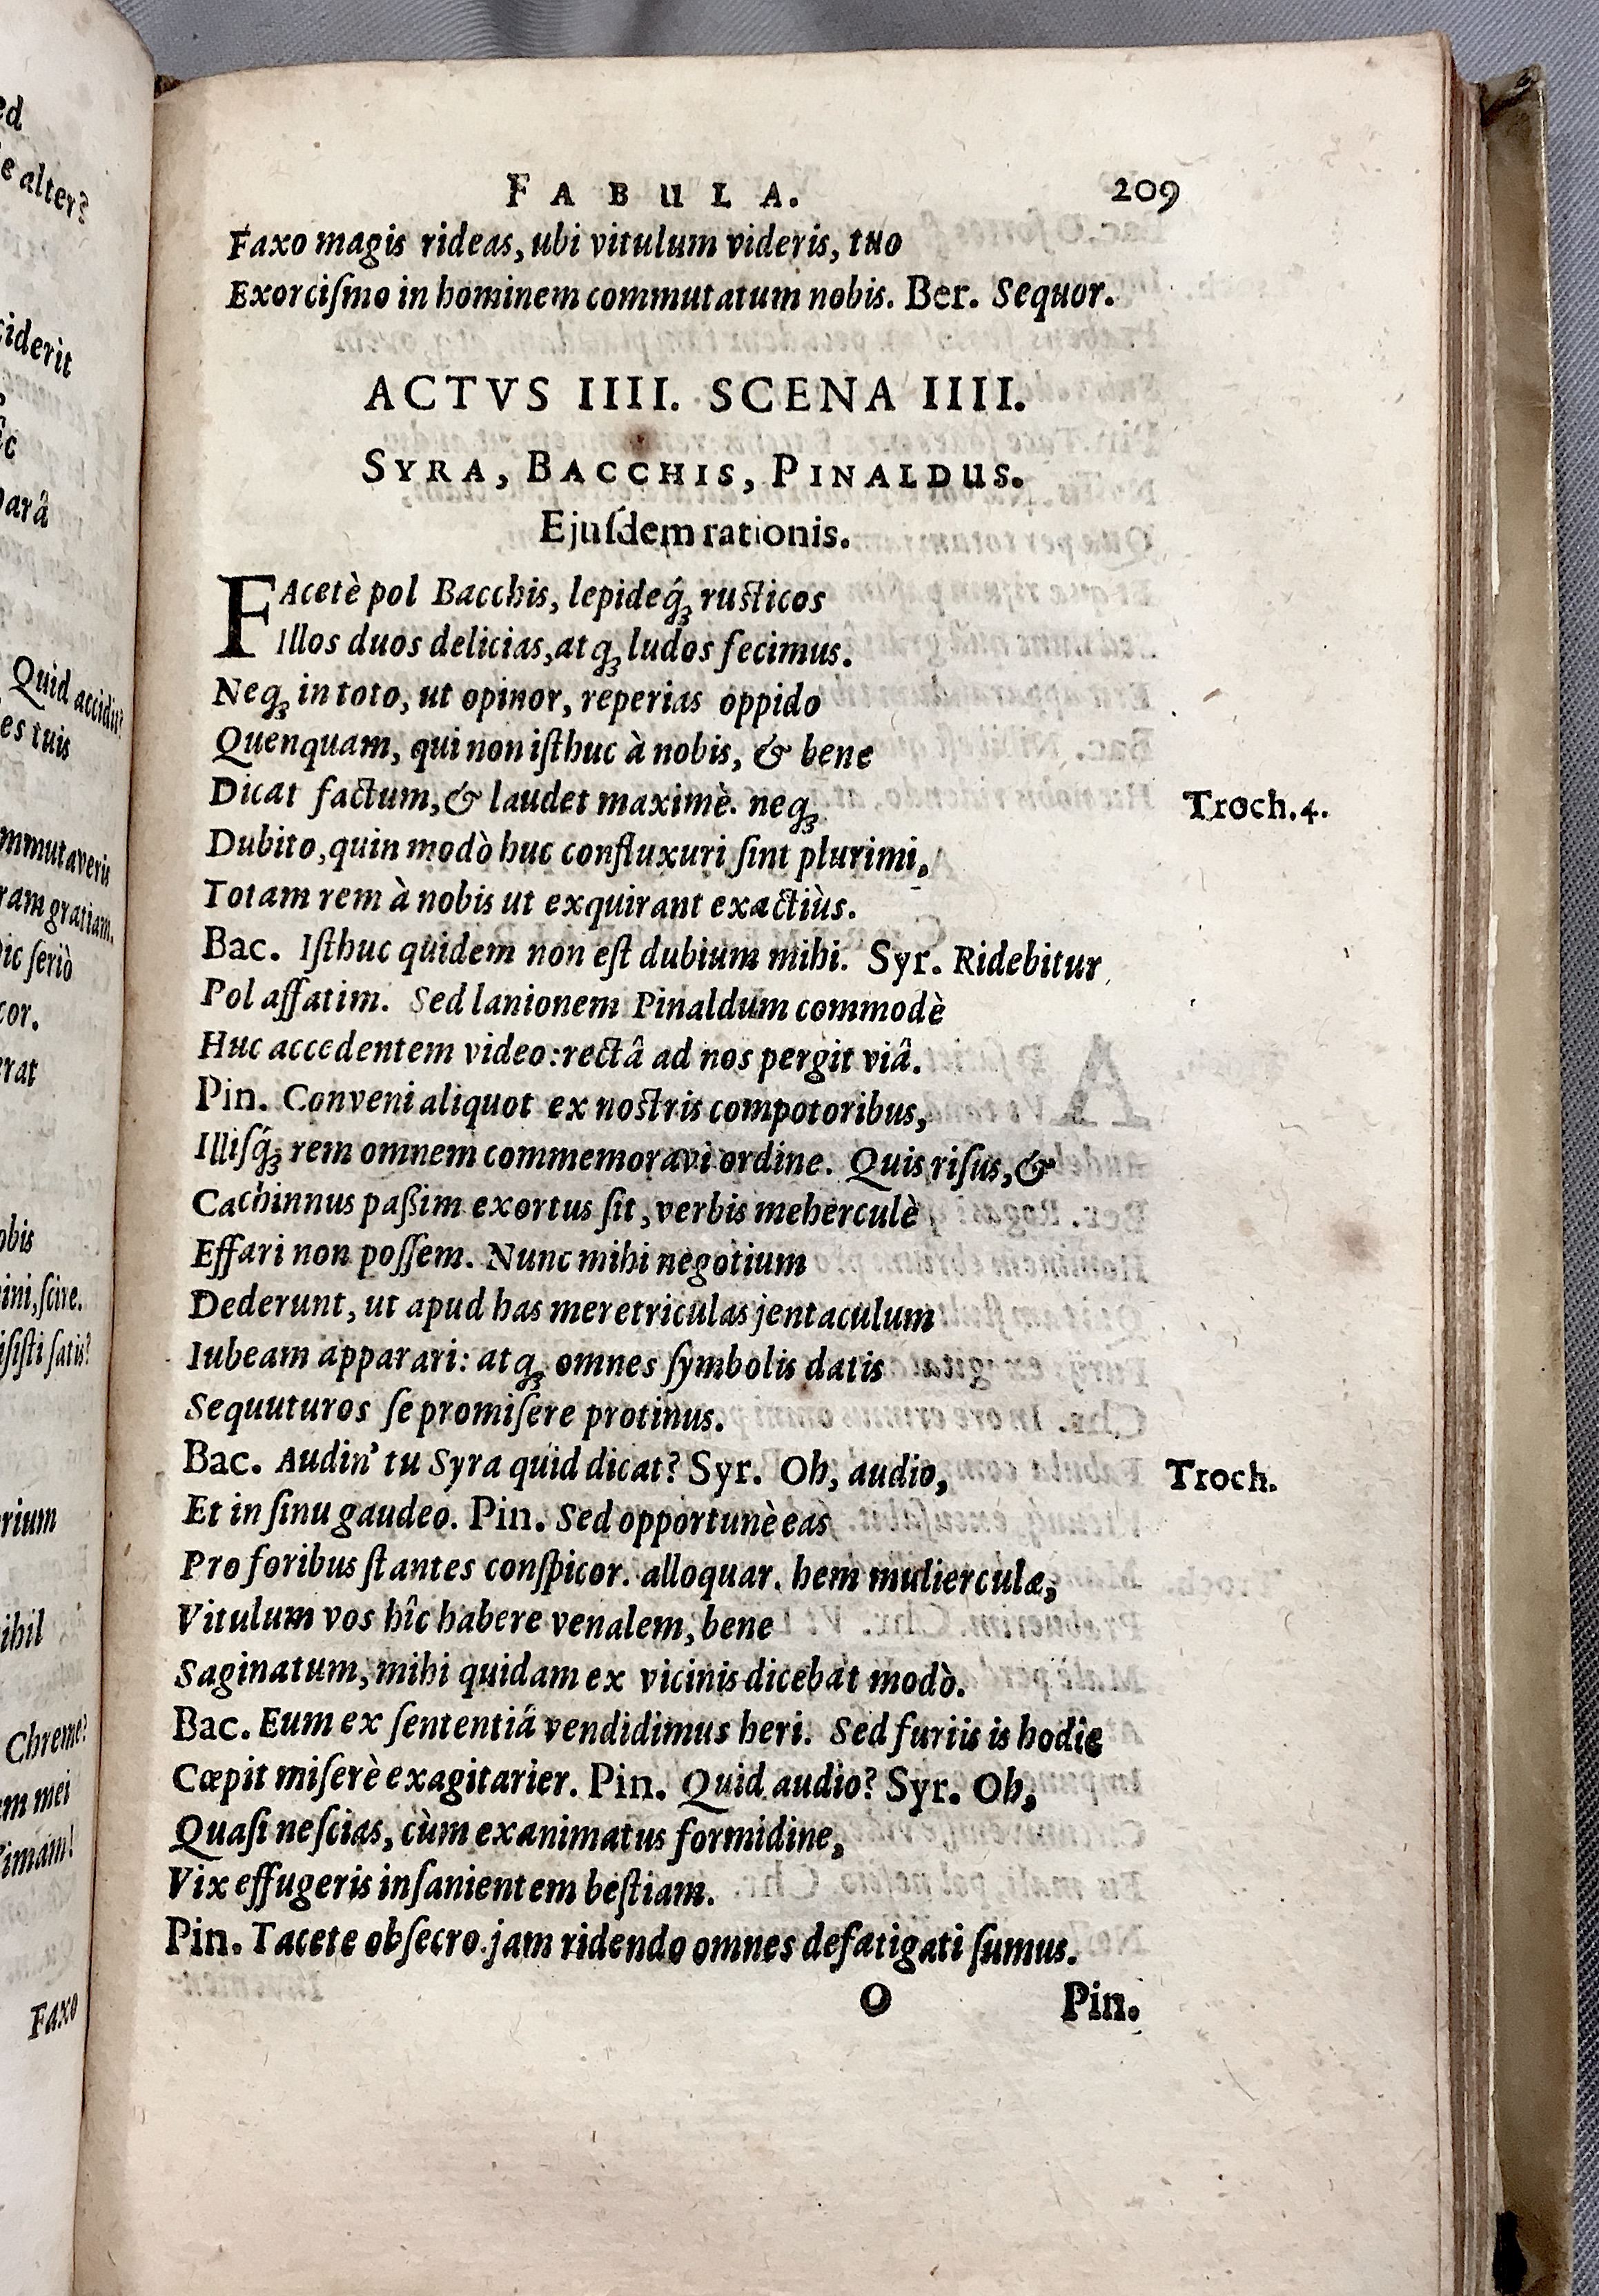 FABULA. 209
Faxo magis rideas, ubi vitulum videris, tuo
Exorciſmo in hominem commutatum nobis. Ber. Sequor.
ACTVS IIII. SCENA IIII.
SYRA, BACCHIS, PINALDUS.
Ejuſdem rationis.
FAcetè pol Bacchis, lepideq́ꝫ rusticos
Illos duos delicias, atqꝫ ludos fecimus.
Neqꝫ in toto, ut opinor, reperias oppido
Quenquam, qui non iſthuc à nobis, & bene
Dicat factum, & laudet maximè. neqꝫ Troch. 4.
Dubito, quin modò huc confluxuri ſint plurimi,
Totam rem à nobis ut exquirant exactiùs.
Bac. Iſthuc quidem non eſt dubium mihi. Syr. Ridebitur
Pol affatim. Sed lanionem Pinaldum commodè
Huc accedentem video: rectâ ad nos pergit viâ.
Pin. Conveni aliquot ex nostris compotoribus,
Illiſq́ꝫ rem omnem commemoravi ordine. Quis riſus, &
Cachinnus paßim exortus ſit, verbis meherculè
Effari non poſſem. Nunc mihi negotium
Dederunt, ut apud has meretriculas jentaculum
Iubeam apparari: atqꝫ omnes ſymbolis datis
Sequuturos ſe promiſere protinus.
Bac. Audin' tu Syra quid dicat? Syr. Oh, audio, Troch.
Et in ſinu gaudeo. Pin. Sed opportunè eas
Pro foribus ſtantes conſpicor. alloquar. hem mulierculæ,
Vitulum vos hîc habere venalem, bene
Saginatum, mihi quidam ex vicinis dicebat modò.
Bac. Eum ex ſententiâ vendidimus heri. Sed furiis is hodie
Cœpit miſerè exagitarier. Pin. Quid audio? Syr. Oh,
Quaſi neſcias, cùm exanimatus formidine,
Vix effugeris inſanientem beſtiam.
Pin. Tacete obſecro. jam ridendo omnes defatigati ſumus.
O Pin.
ed
e alter?
ciderit
Quid accidit?
es tuis
mmutaveris
ram gratiam.
ic ſeriò
cor.
erat
obis
ini, ſcire.
iſiſti ſatis?
rium
ihil
Chreme?
em mei
Faxo